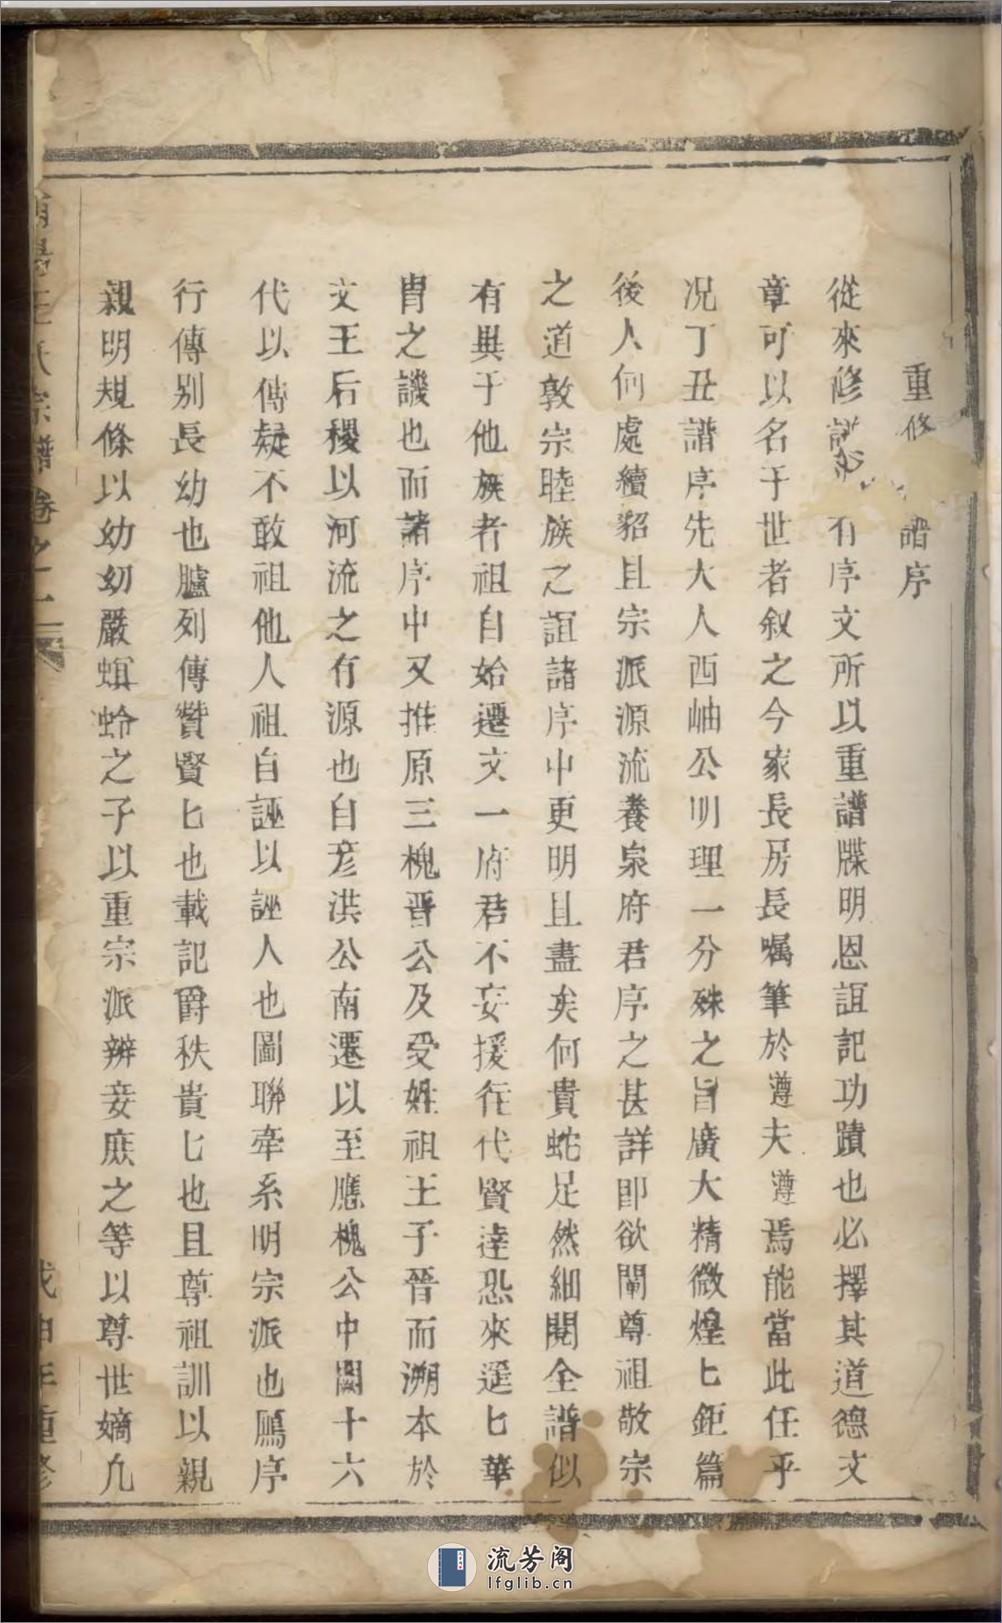 重修譜序
從來修譜必有序文所以重譜牒明恩誼記功蹟也必擇其道德文
章可以名于世者叙之今家長房長嘱筆於遵夫遵焉能當此任乎
况丁丑譜序先大人西岫公明理一分殊之旨廣大精微煌匕鉅篇
後人何處續貂且宗派源流養泉府君序之甚詳即欲闡尊祖敬宗
之道敦宗睦族之誼諸序中更明且盡矣何貴蛇足然細閱全譜似
有異于他族者祖自始遷文一府君不妄援往代賢逹恐來遥匕華
胄之譏也而諸序中又推原三槐晋公及受姓祖王子晉而溯本於
文王后稷以河流之有源也自彦洪公南遷以至應槐公中闕十六
代以傳疑不敢祖他人祖自誣以誣人也圖聯牽系明宗派也鴈序
行傳别長幼也臚列傳贊賢匕也載記爵秩貴匕也且尊祖訓以親
親明規條以幼幼嚴螟蛉之子以重宗派辨妾庶之等以尊世嫡凢
王氏宗譜卷之一
戊申年重修
流芳阁
lfglib.cn